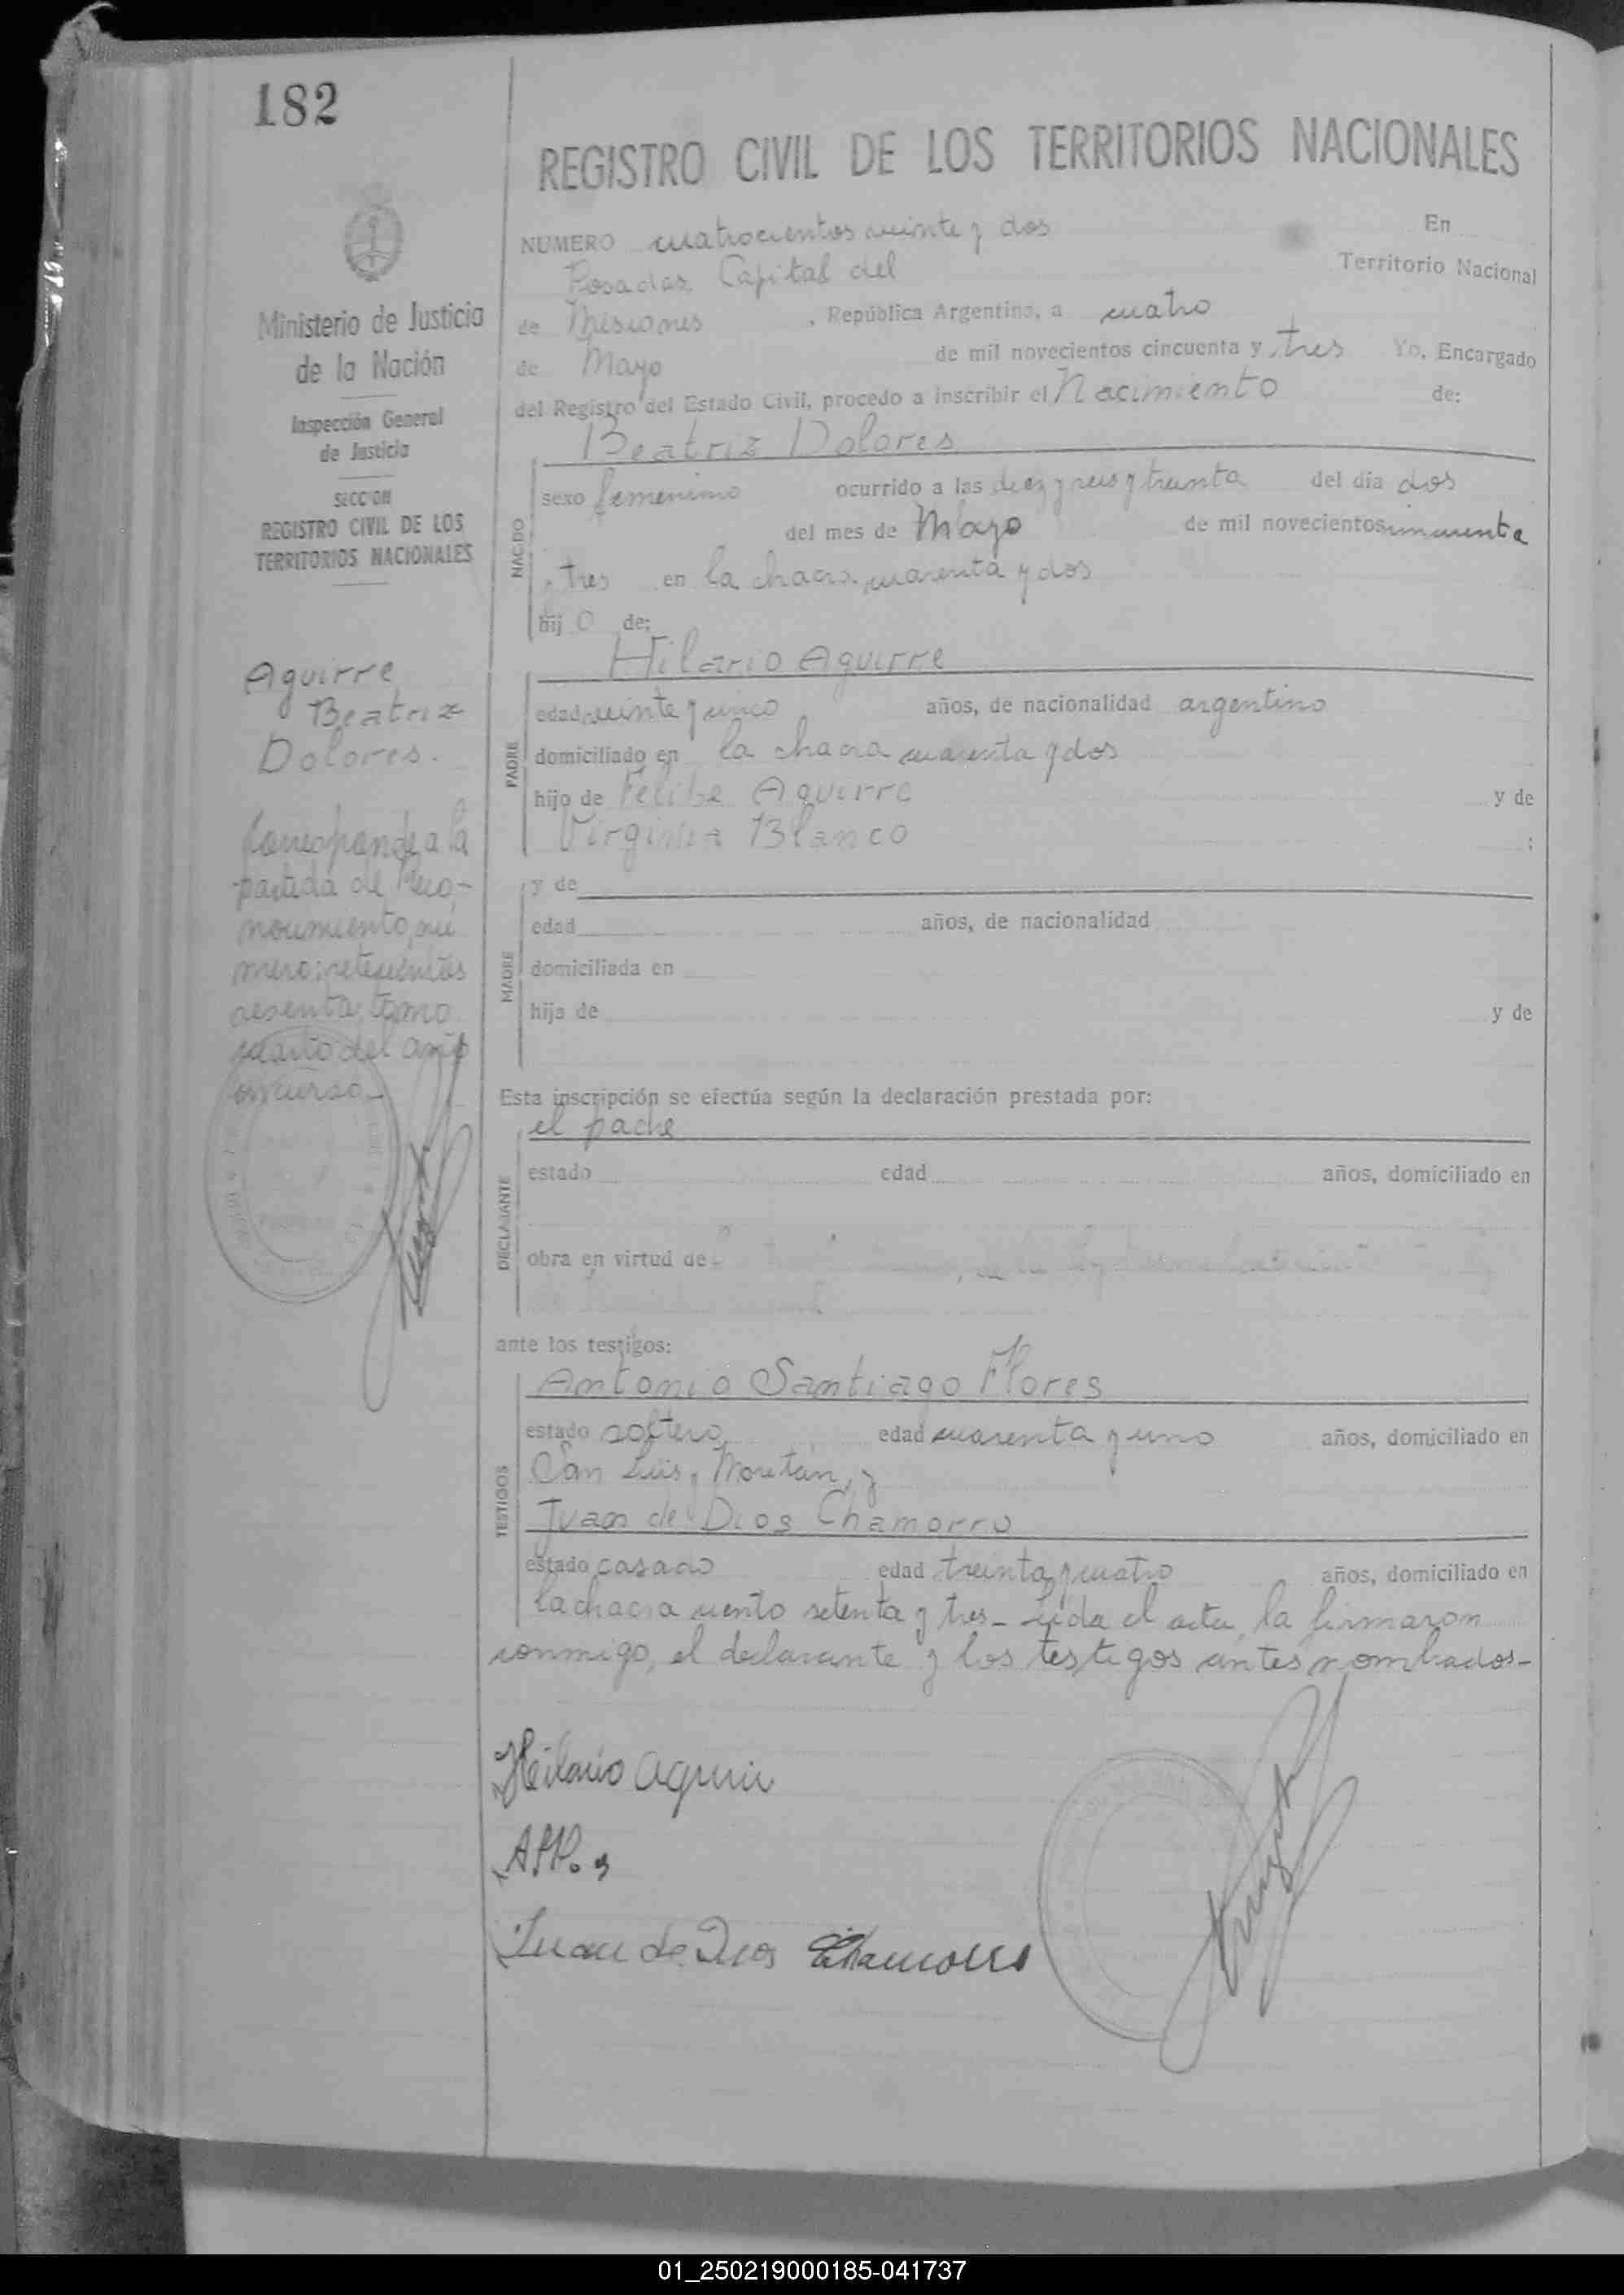 182
REGISTRO CIVIL DE LOS TERRITORIOS NACIONALES
Ministerio de Justicia
de la Nación
Inspección General
de Justicia
SECCION
REGISTRO CIVIL DE LOS
TERRITORIOS NACIONALES
Aguirre
Beatriz
Dolores.
Corresponde a la
partida de Reco-
nocimiento, nú
mero setecientos
sesenta, tomo
cuarto del año
en curso.-
NUMERO cuatrocientos veinte y dos En
Posadas, Capital del Territorio Nacional
de Misiones, República Argentina, a cuatro
de Mayo de mil novecientos cincuenta y tres Yo, Encargado
del Registro del Estado Civil, procedo a inscribir el Nacimiento de:
Beatriz Dolores
NACIDO
sexo femenino ocurrido a las diez y seis y treinta del día dos
del mes de Mayo de mil novecientos cincuenta
y tres en la chacra cuarenta y dos
hij o de:
Hilario Aguirre
PADRE
edad veinte y cinco años, de nacionalidad argentino
domiciliado en la chacra cuarenta y dos
hijo de Felipe Aguirre y de
Virginia Blanco ;
MADRE
y de
edad años, de nacionalidad
domiciliada en
hija de y de
Esta inscripción se efectúa según la declaración prestada por:
el padre
DECLARANTE
estado edad años, domiciliado en
obra en virtud de
ante los testigos:
TESTIGOS
Antonio Santiago Flores
estado soltero edad cuarenta y uno años, domiciliado en
San Luis y Moretan, y
Juan de Dios Chamorro
estado casado edad treinta y cuatro años, domiciliado en
la chacra ciento setenta y tres- Leída el acta, la firmaron
conmigo, el declarante y los testigos antes nombrados-
Hilario Aguirre
Juan de Dios Chamorro
01_250219000185-041737